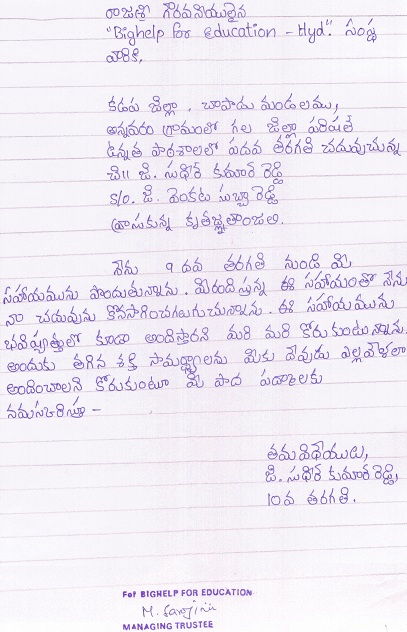 రాజశ్రీ గౌరవనీయులైన
"Bighelp for education - Hyd". సంస్థ
వారికి,
కడప జిల్లా, చాపాడు మండలము,
అన్నవరం గ్రామంలో గల జిల్లా పరిషత్
ఉన్నత పాఠశాలలో పదవ తరగతి చదువుచున్న
చి॥ జి. సుధీర్ కుమార్ రెడ్డి
S/o. జి. వెంకట సుబ్బా రెడ్డి
వ్రాసుకున్న కృతజ్ఞతాంజలి.
నేను 9 దవ తరగతి నుండి మీ
సహాయమును పొందుతున్నాను. మీరందిస్తున్న ఈ సహాయంతో నేను
నా చదువును కొనసాగించగలుగుచున్నాను. ఈ సహాయమును
భవిష్యత్తులో కూడా అందిస్తారని మరి మరి కోరుకుంటున్నాను.
అందుకు తగిన శక్తి సామర్థ్యాలను మీకు దేవుడు ఎల్లవేళలా
అందించాలని కోరుకుంటూ మీ పాద పద్మాలకు
నమస్కరిస్తూ -
తమ విధేయులు,
జి. సుధీర్ కుమార్ రెడ్డి,
10వ తరగతి.
For BIGHELP FOR EDUCATION
M. Sarojini
MANAGING TRUSTEE